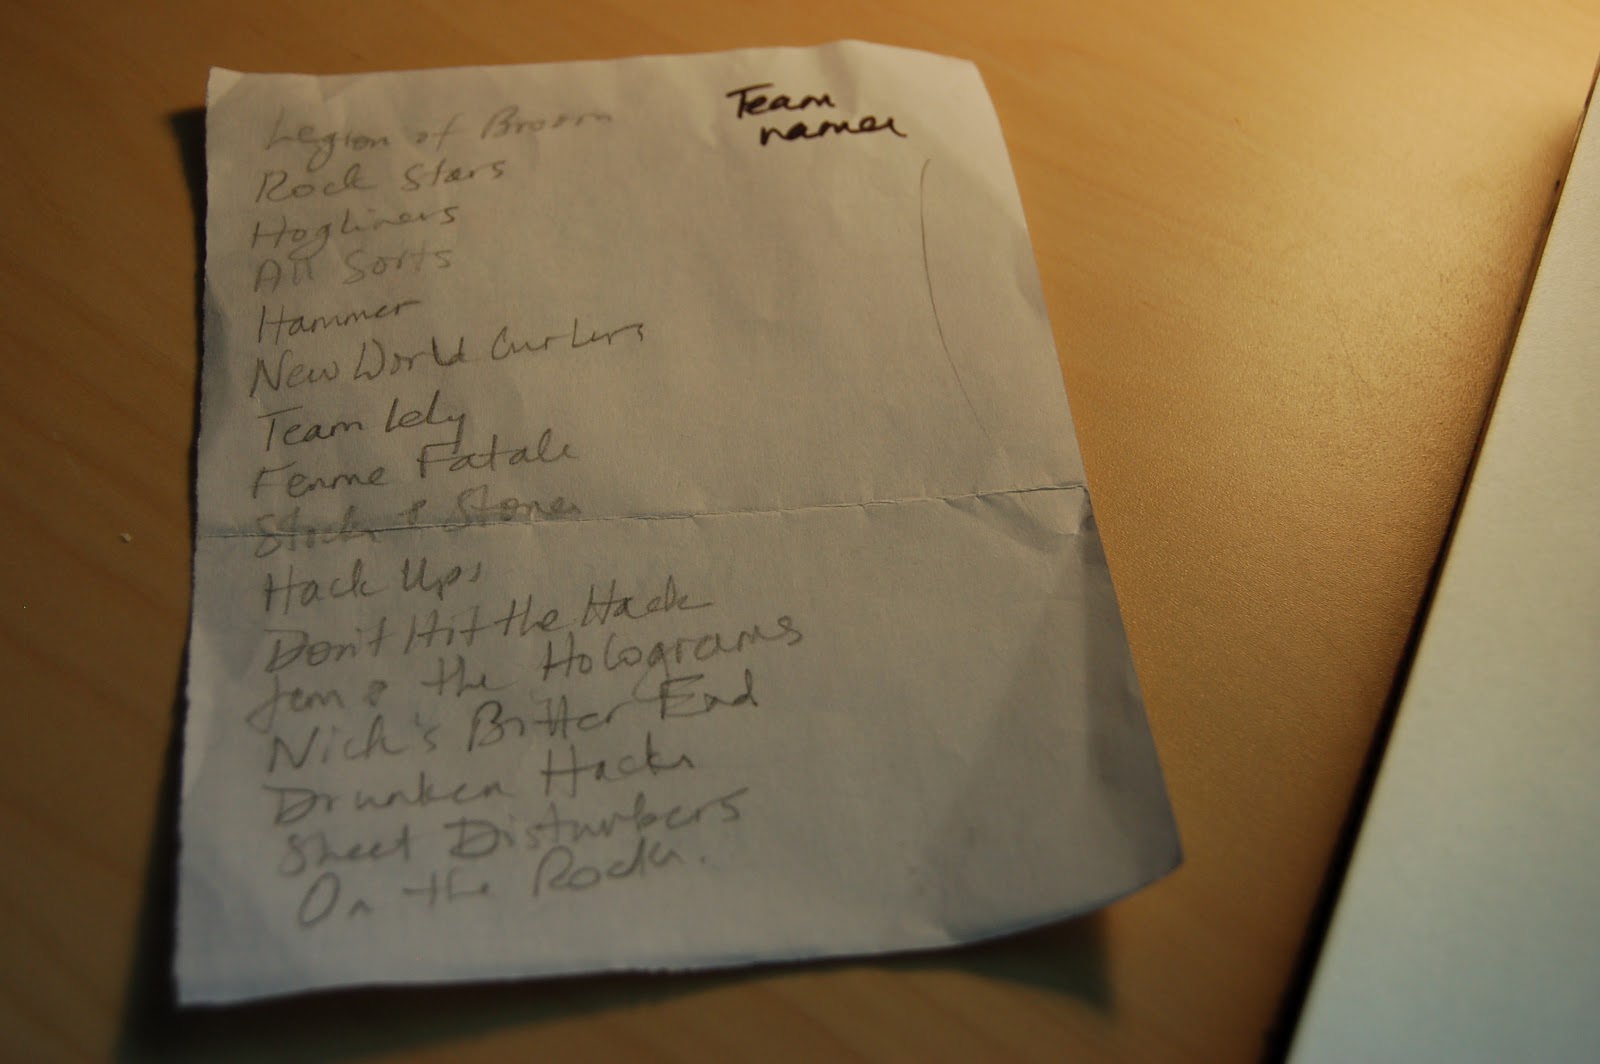 Team
names
Legion of Broom
Rock Stars
Hogliners
All Sorts
Hammer
New World Curlers
Team Lely
Femme Fatale
Stick & Stones
Hack Ups
Don't Hit the Hack
Jem & the Holograms
Nick's Bitter End
Drunken Hacks
Sheet Disturbers
On the Rocks.